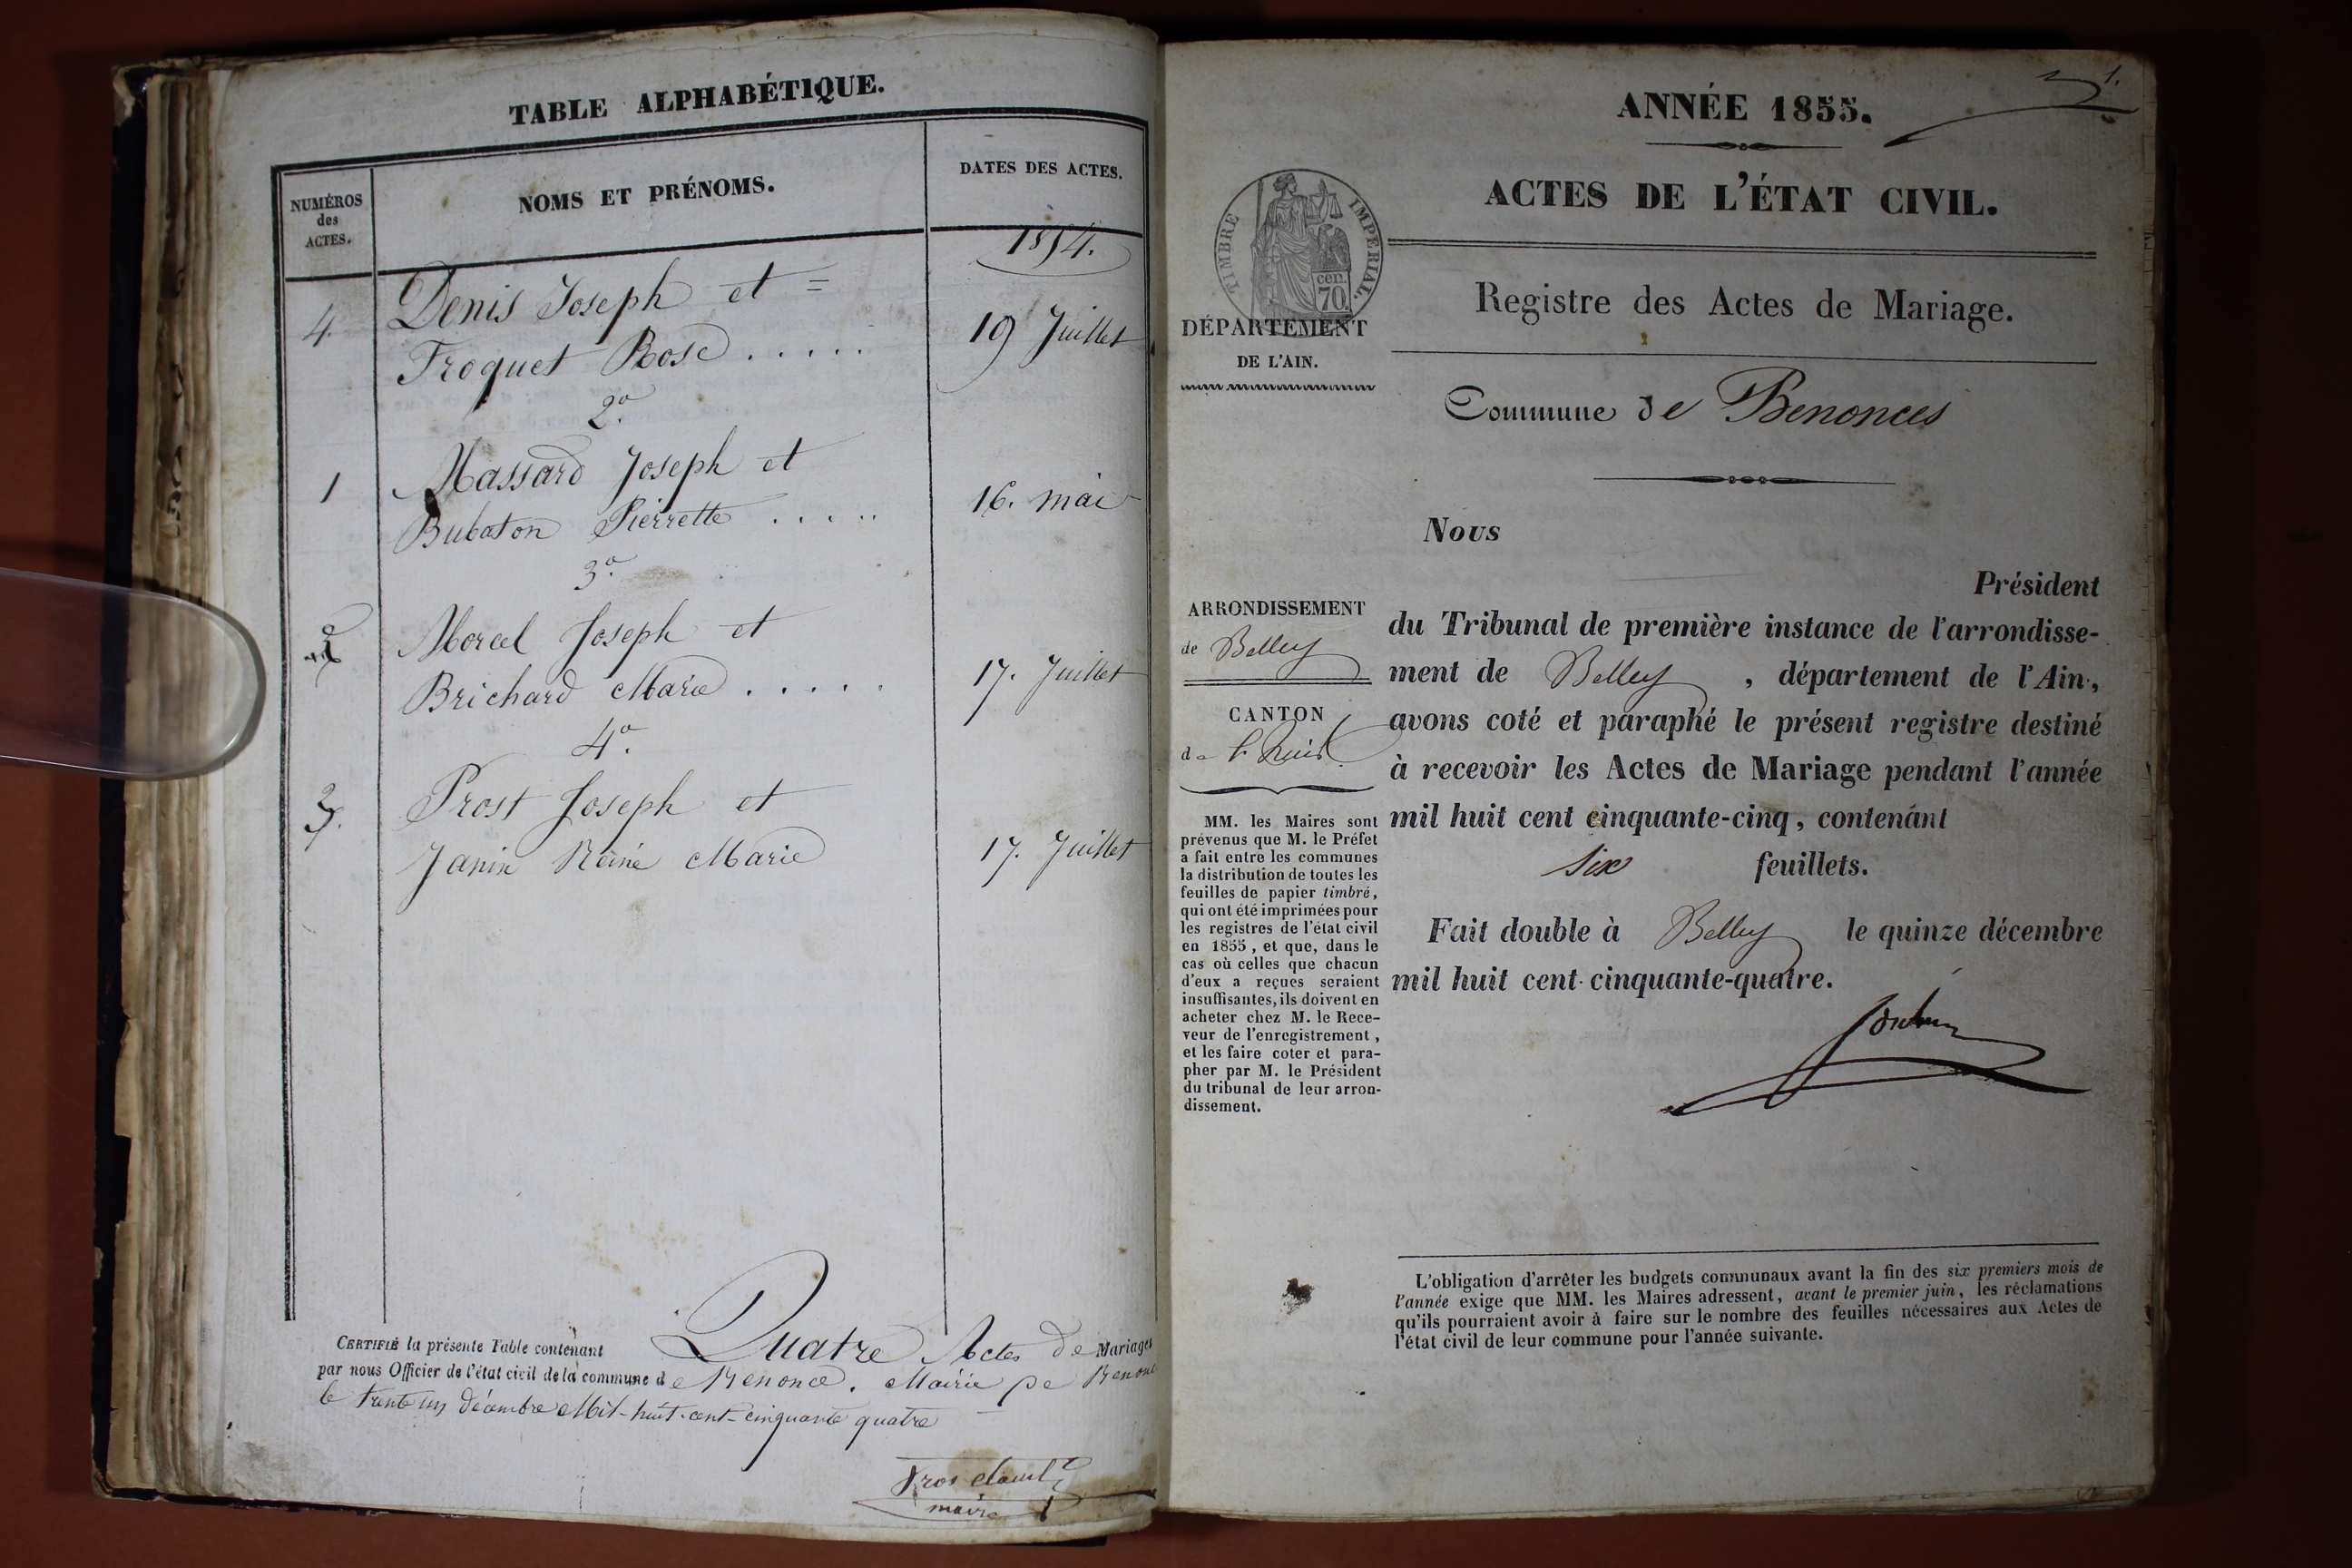 TABLE ALPHABÉTIQUE.
NUMÉROS
des
ACTES.
NOMS ET PRÉNOMS.
DATES DES ACTES.
1854.
4. Denis Joseph et =
Troquet Rose ..... 19 Juillet
2°.
1 Massard Joseph et
Bubaton Pierrette ..... 16. mai
3°.
2 Morel Joseph et
Brichard Marie ..... 17. Juillet
4°.
3. Prost Joseph et
Janin Reine Marie 17. Juillet
CERTIFIÉ la présente Table contenant Quatre Actes de Mariages
par nous Officier de l'état civil de la commune de Benonce. Mairie de Benonce
le trente un décembre Mil-huit-cent-cinquante quatre
maire
1.
ANNÉE 1855.
ACTES DE L'ÉTAT CIVIL.
TIMBRE IMPERIAL.
70 cen.
Registre des Actes de Mariage.
DÉPARTEMENT
DE L'AIN.
Commune de Benonces
Nous
Président
du Tribunal de première instance de l'arrondisse-
ment de Belley, département de l'Ain,
avons coté et paraphé le présent registre destiné
à recevoir les Actes de Mariage pendant l'année
mil huit cent cinquante-cinq, contenant
six feuillets.
Fait double à Belley le quinze décembre
mil huit cent cinquante-quatre.
ARRONDISSEMENT
de Belley
CANTON
de
MM. les Maires sont
prévenus que M. le Préfet
a fait entre les communes
la distribution de toutes les
feuilles de papier timbré,
qui ont été imprimées pour
les registres de l'état civil
en 1855, et que, dans le
cas où celles que chacun
d'eux a reçues seraient
insuffisantes, ils doivent en
acheter chez M. le Rece-
veur de l'enregistrement,
et les faire coter et para-
pher par M. le Président
du tribunal de leur arron-
dissement.
L'obligation d'arrêter les budgets communaux avant la fin des six premiers mois de
l'année exige que MM. les Maires adressent, avant le premier juin, les réclamations
qu'ils pourraient avoir à faire sur le nombre des feuilles nécessaires aux Actes de
l'état civil de leur commune pour l'année suivante.